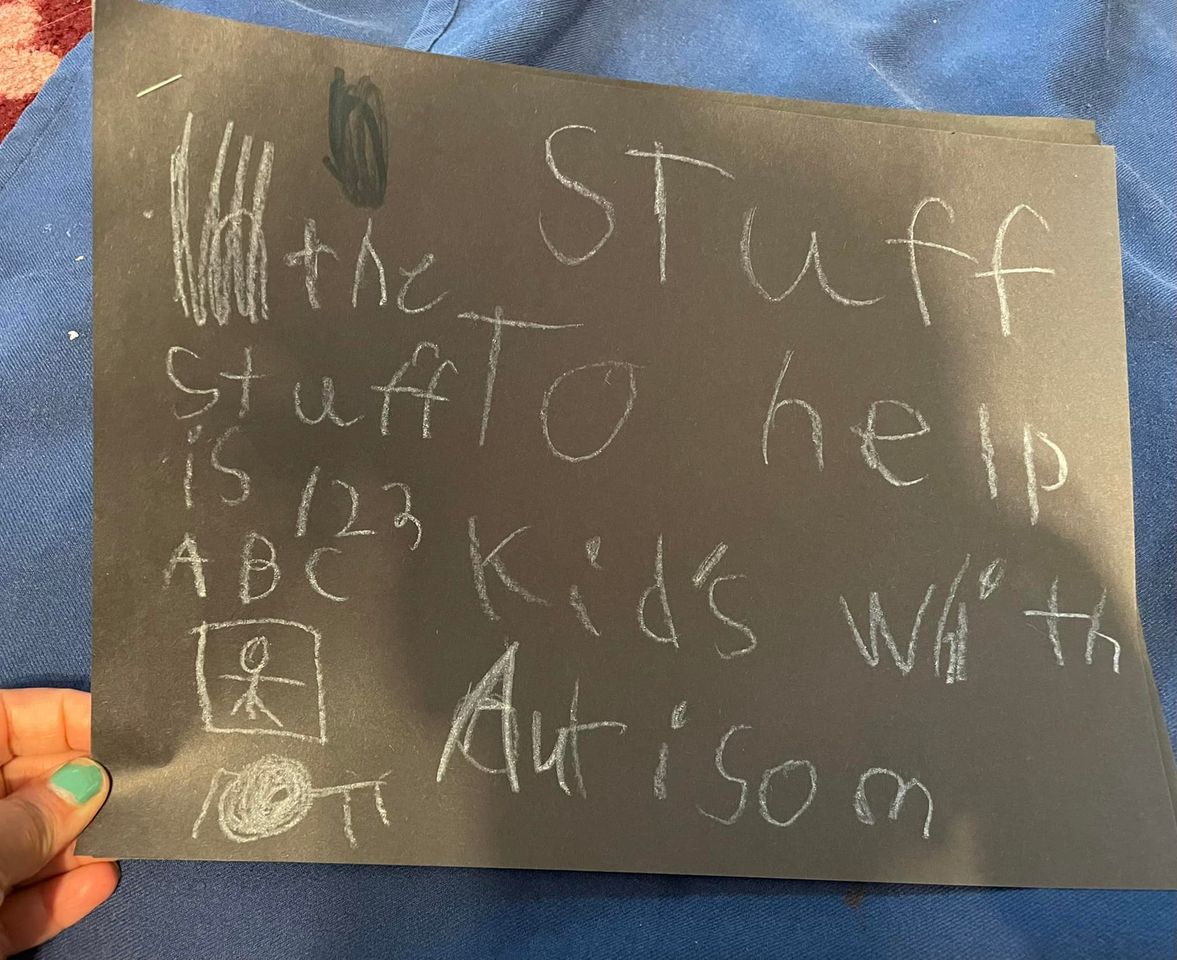 STuff
TO help
Kid's With
Autisom
the
stuff
is 123
ABC